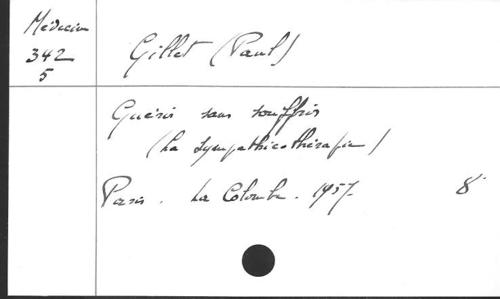 Médecine
342
5
Gillet (Paul)
Guérir sans souffrir
(La Sympathicothérapie)
Paris. La Colombe. 1957. 8°